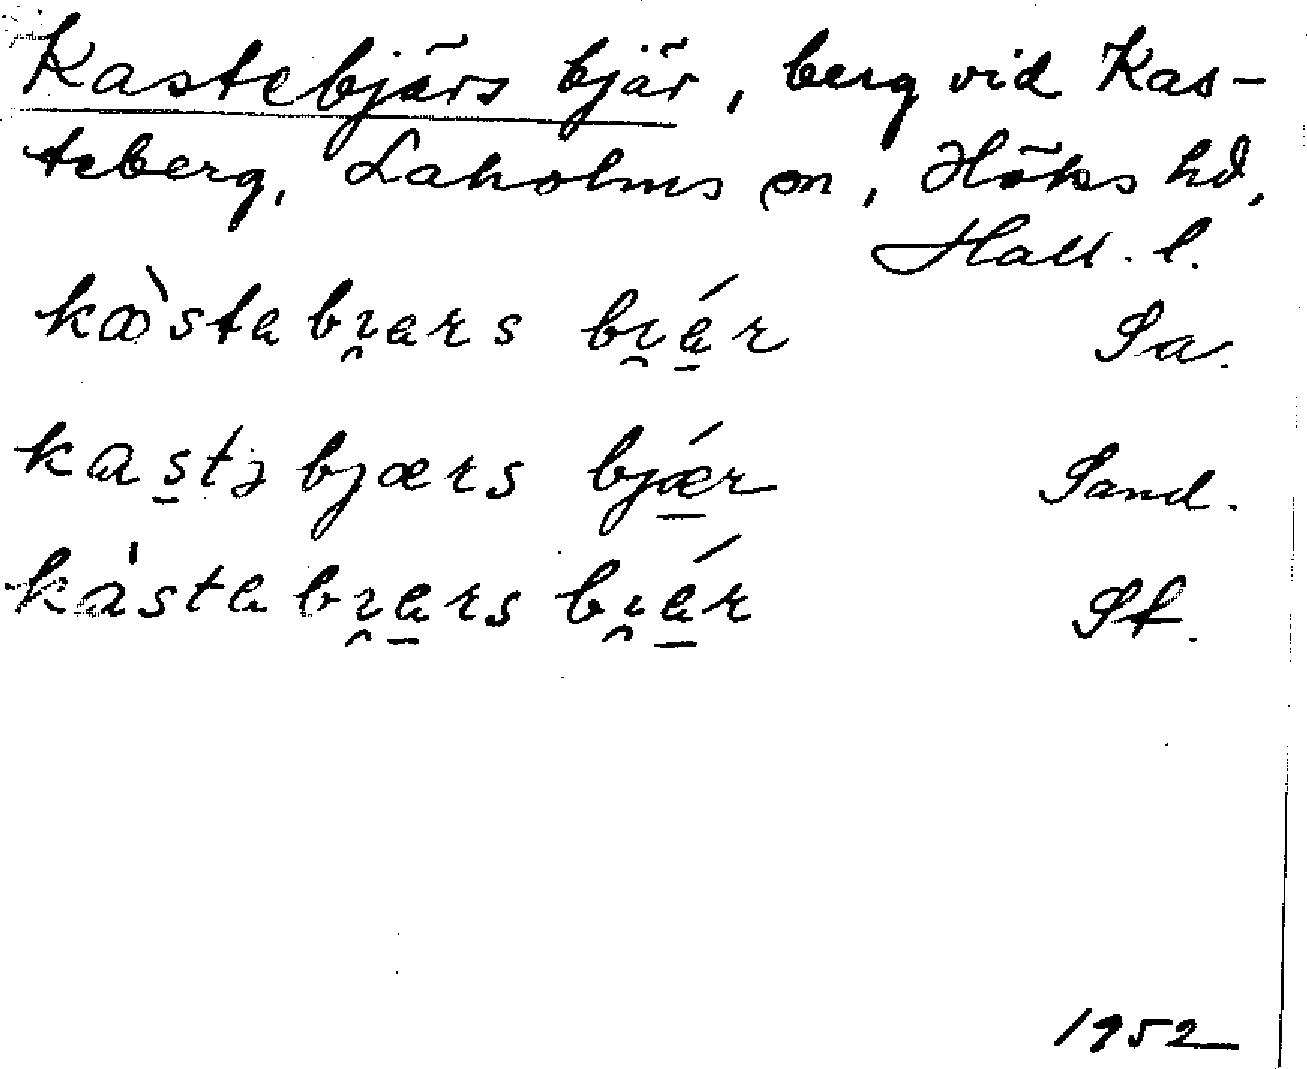 Kastebjärs bjär, berg vid Kas-
teberg, Laholms sn, Höks hd,
Hall. l.
kàstabı̯ars bı̯á̱r Sa.
kas̱təbjærs bjǽ̱r Sand.
kàstabı̯a̱rs bı̯á̱r St.
1952